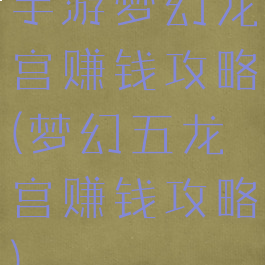 手游梦幻龙
宫赚钱攻略
(梦幻五龙
宫赚钱攻略
)